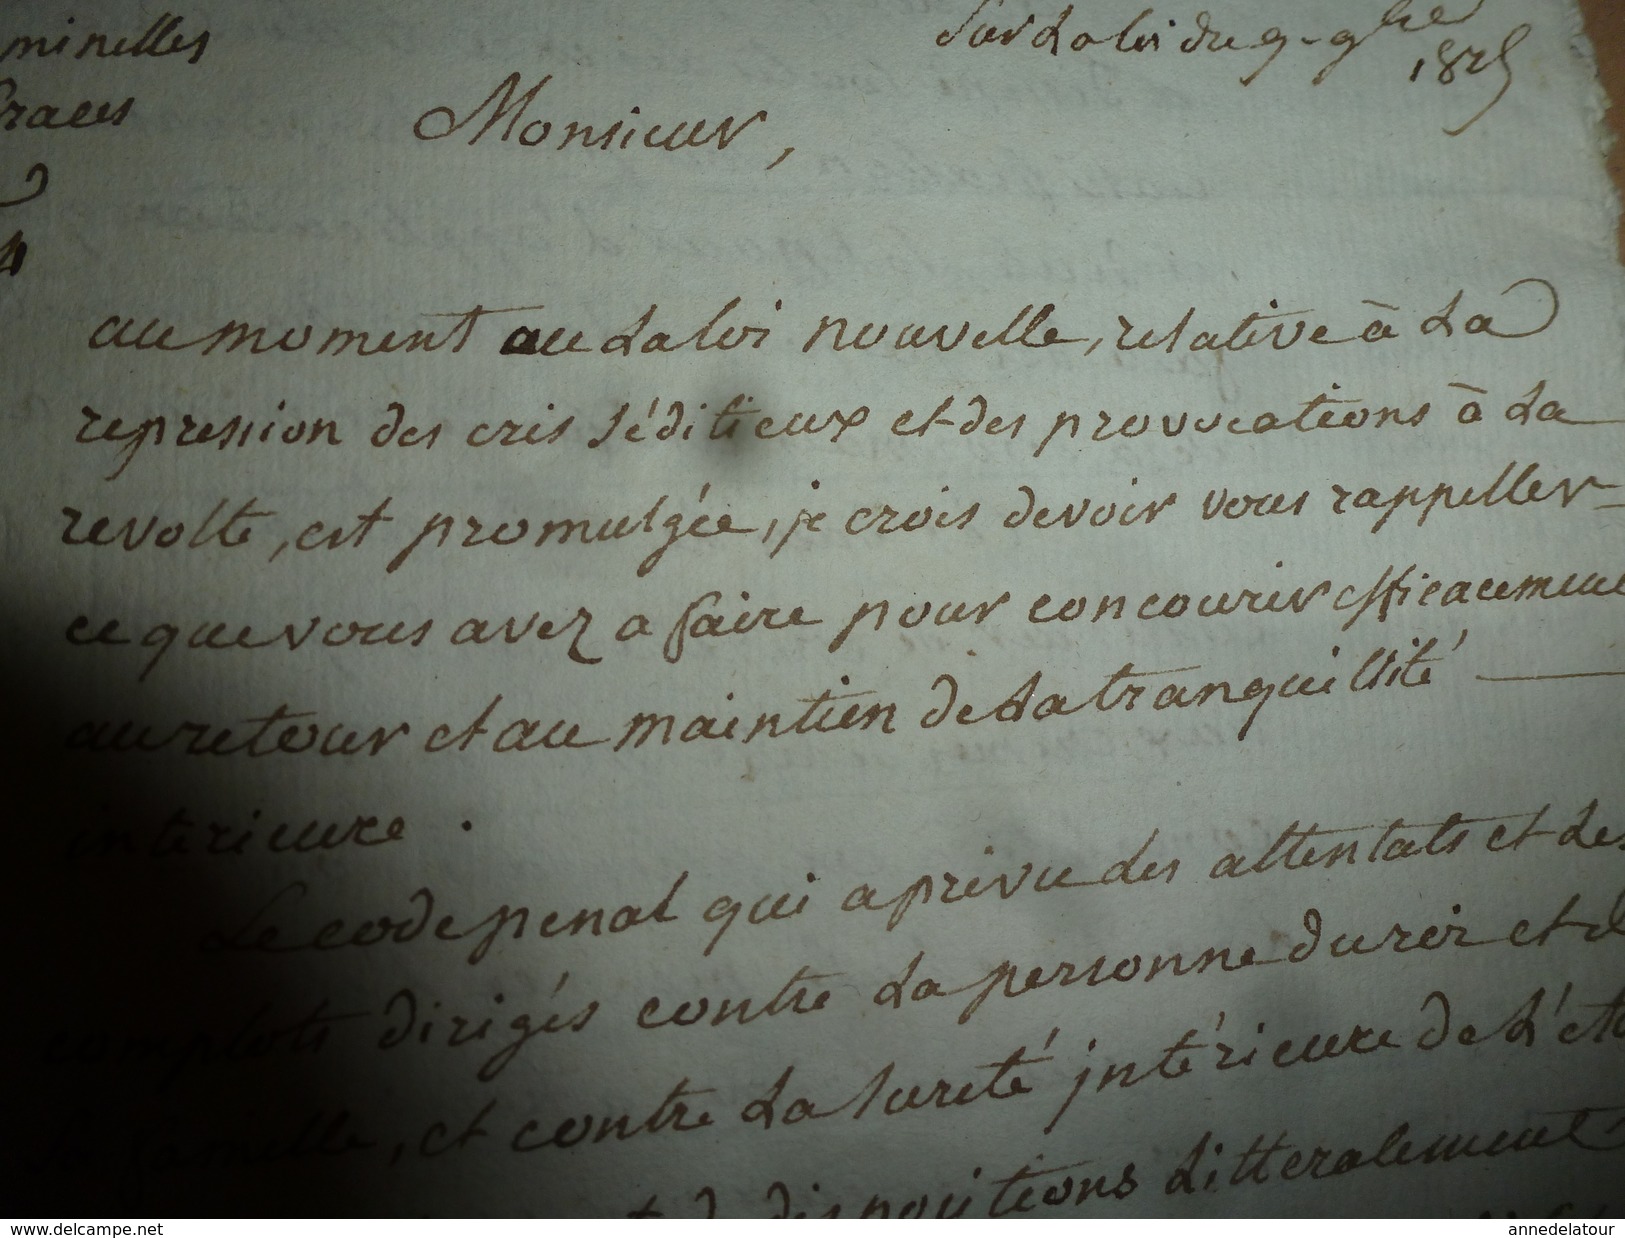 minelles
Graces
Sur La loi du 9. 9bre
1815
Monsieur,
4
au moment au La loi nouvelle, relative à La
repression des cris séditieux et des provocations à La
revolte, est promulgée, je crois devoir vous rappeller
ce que vous avez a faire pour concourir efficacement
au retour et au maintien de La tranquillité
interieure.
Le code penal qui a prevu des attentats et des
complots dirigés contre La personne du roi et de
La famille, et contre La sureté intérieure de L'état
dispositions Litteralement
www.delcampe.net
annedelatour